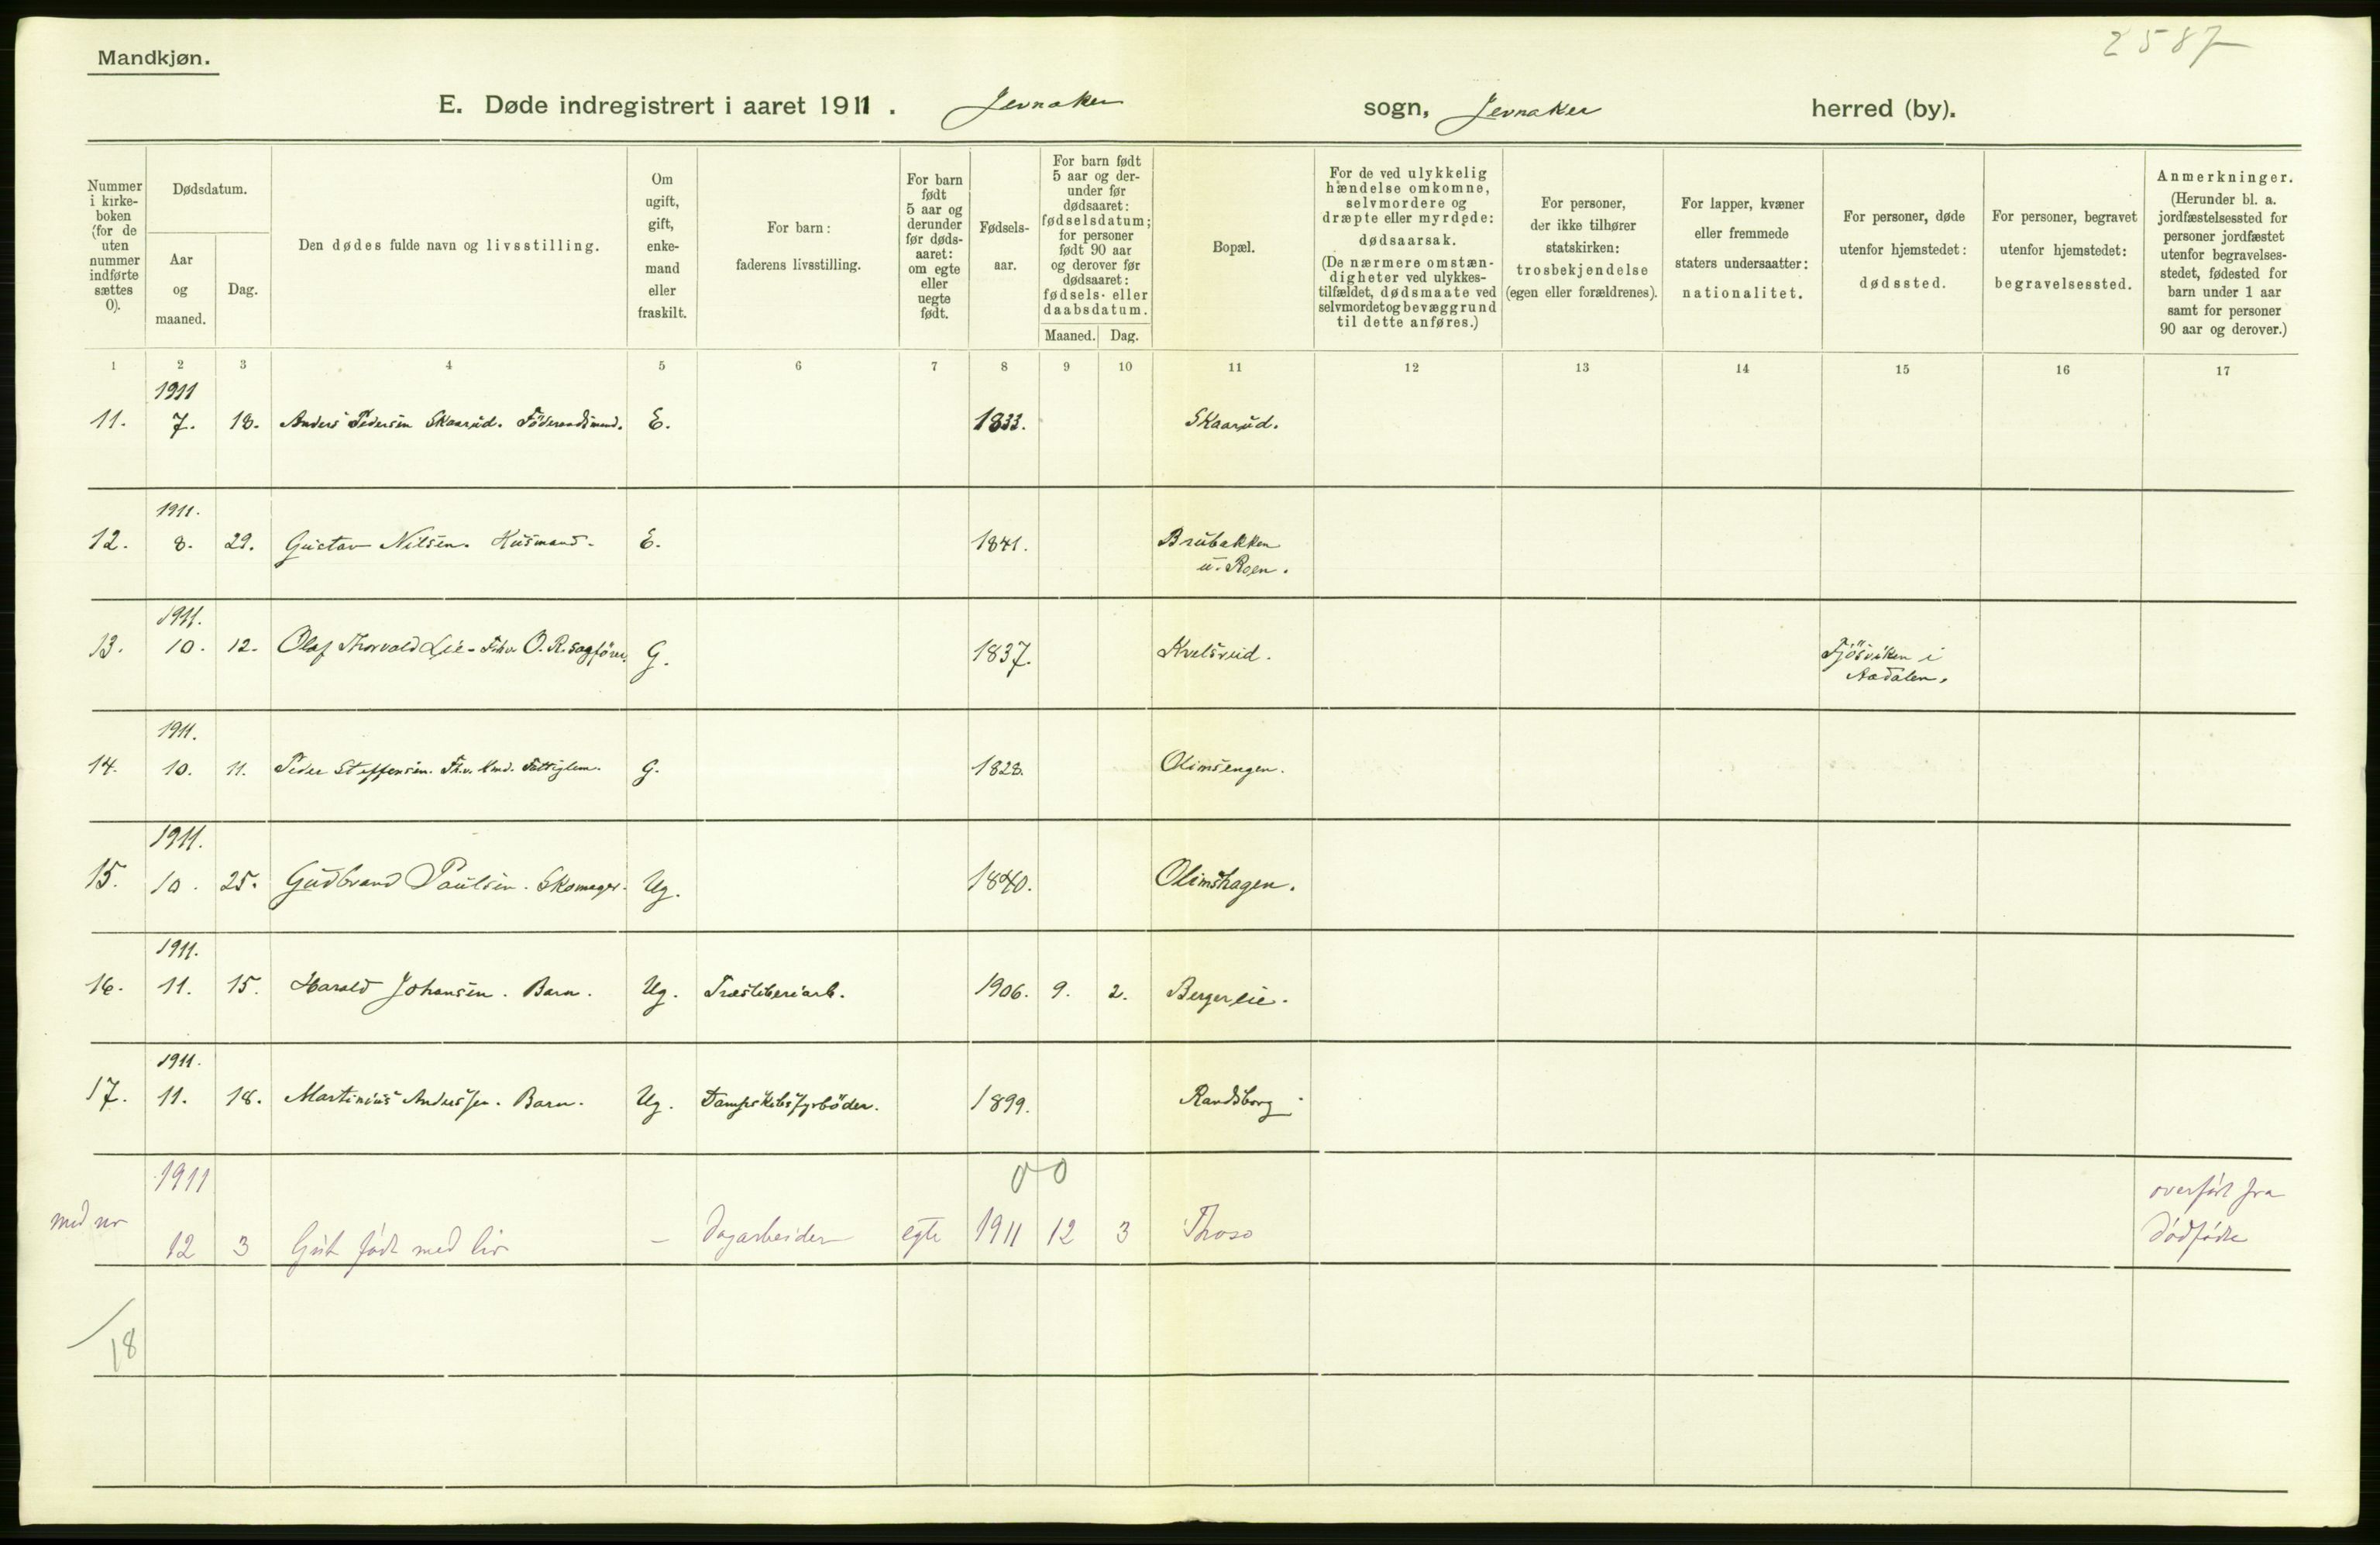 2587
Mandkjøn.
E. Døde indregistrert i aaret 1911. Jevnaker sogn, Jevnaker herred (by).
Nummer i kirke-boken (for de uten nummer indførte sættes 0).
Dødsdatum.
Aar og maaned.
Dag.
Den dødes fulde navn og livsstilling.
Om ugift, gift, enke-mand eller fraskilt.
For barn: faderens livsstilling.
For barn født 5 aar og derunder før døds-aaret: om egte eller uegte født.
Fødsels-aar.
For barn født 5 aar og der-under før dødsaaret: fødselsdatum; for personer født 90 aar og derover før dødsaaret: fødsels- eller daabsdatum.
Maaned.
Dag.
Bopæl.
For de ved ulykkelig hændelse omkomne, selvmordere og dræpte eller myrdede: dødsaarsak. (De nærmere omstæn-digheter ved ulykkes-tilfældet, dødsmaate ved selvmordet og bevæggrund til dette anføres.)
For personer, der ikke tilhører statskirken: trosbekjendelse (egen eller forældrenes).
For lapper, kvæner eller fremmede staters undersaatter: nationalitet.
For personer, døde utenfor hjemstedet: dødssted.
For personer, begravet utenfor hjemstedet: begravelsessted.
Anmerkninger. (Herunder bl. a. jordfæstelsessted for personer jordfæstet utenfor begravelses-stedet, fødested for barn under 1 aar samt for personer 90 aar og derover.)
1 2 3 4 5 6 7 8 9 10 11 12 13 14 15 16 17
1911
11. 7. 18. Anders Pedersen Skaarud. Föderaadsmand. E. 1833. Skaarud.
1911.
12. 8. 29. Gustav Nilsen. Husmand. E. 1841. Brubakken
u. Roen.
1911.
13. 10. 12. Olaf Thorvald Lie - Fhv. O.R.sagförer. G. 1837. Kvelsrud. Fjösviken i
Aadalen.
1911.
14. 10. 11. Peder Steffensen. Fh.v. Hmd. Fattiglem. G. 1828. Olimsengen.
1911.
15. 10. 25. Gudbrand Paulsen. Skomager. Ug. 1840. Olimshagen.
1911.
16. 11. 15. Harald Johansen. Barn. Ug. Træsliberiarb. 1906. 9. 2. Bergereie.
1911.
17. 11. 18. Martinius Anderssen. Barn. Ug. Dampskibsfyrböder. 1899. Randsborg.
1911 00 overført fra
12 3 Gut født med liv - Dagarbeider egte 1911 12 3 dødfødte
18